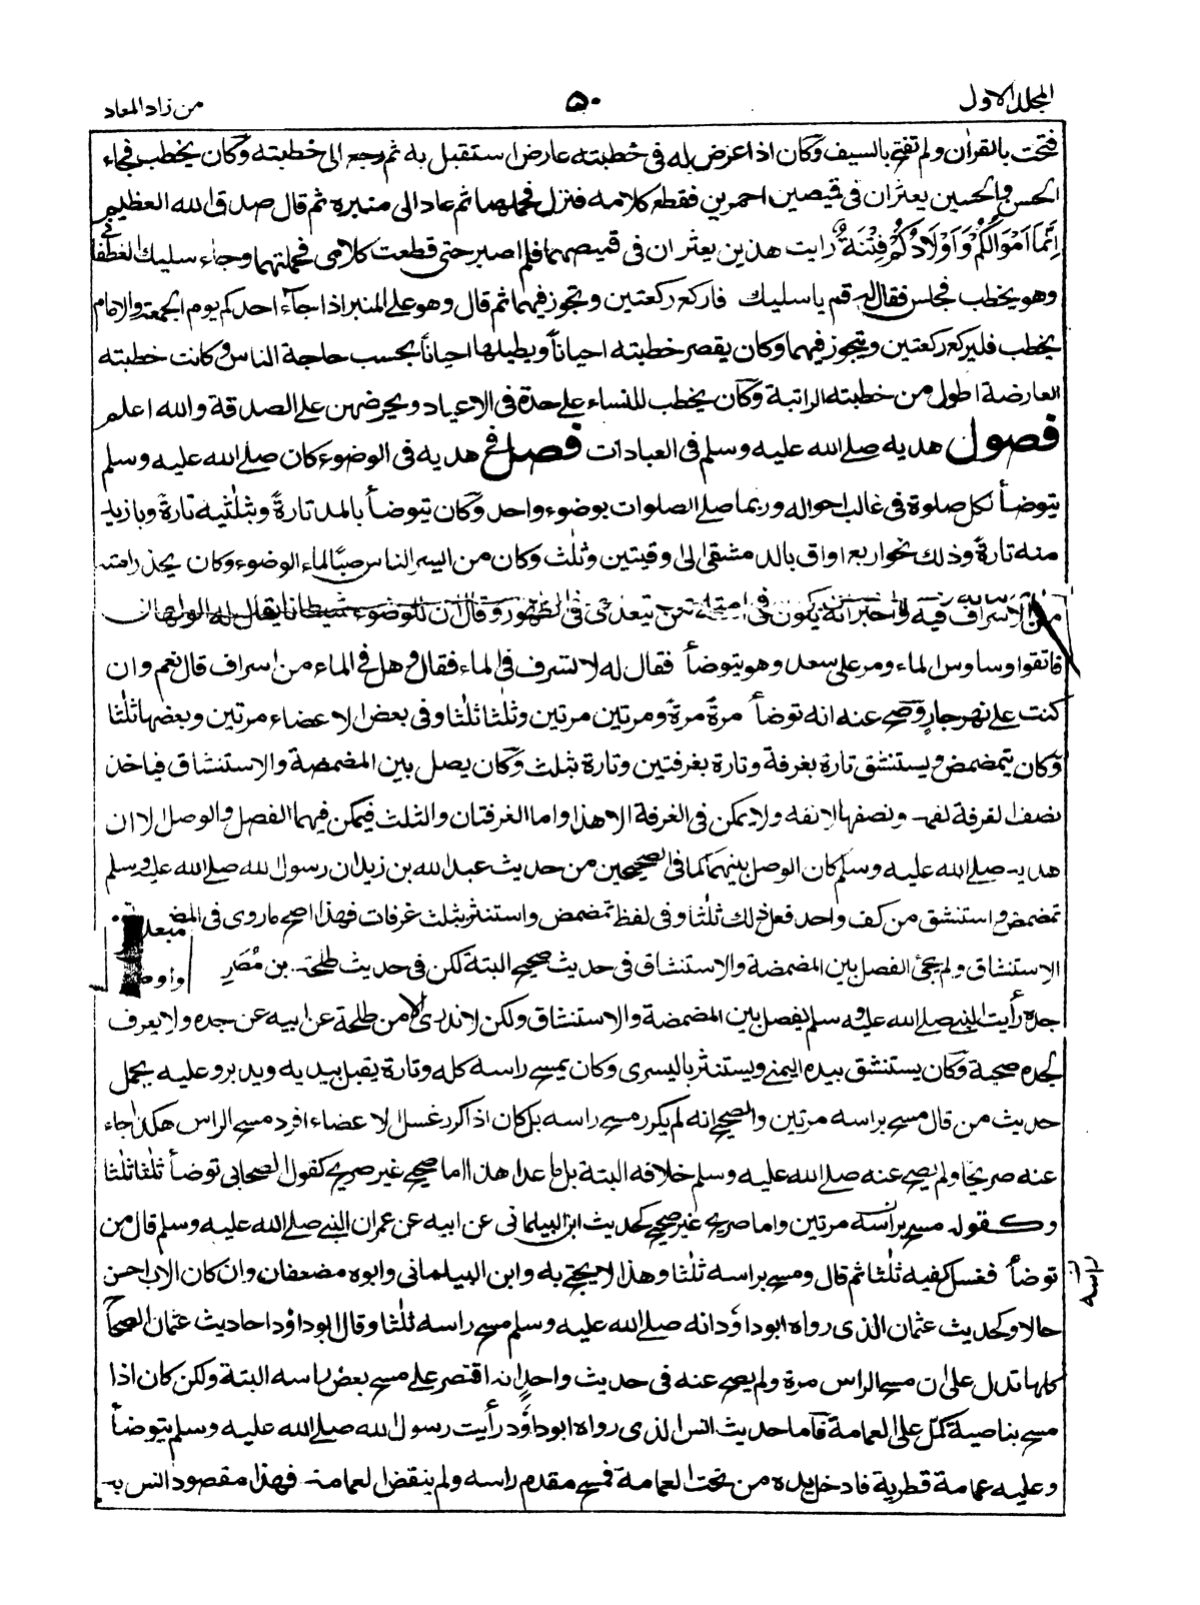 المجلد الاول
۵۰
من زاد المعاد
فتحت بالقران ولم تفتح بالسيف وكان اذا عرض له فى خطبته عارض استقبل به ثم رجع الى خطبته وكان يخطب فجاء
الحسن والحسين يعثران فى قميصين احمرين فقطع كلامه فنزل فحملهما ثم عاد الى منبره ثم قال صدق الله العظيم
اِنَّمَا اَمْوَالُكُمْ وَاَوْلَادُكُمْ فِتْنَةٌ رايت هذين يعثران فى قميصهما فلم اصبر حتى قطعت كلامى فحملتهما وجاء سليك الغطفانى
وهو يخطب فجلس فقال له قم ياسليك فاركع ركعتين وتجوز فيهما ثم قال وهو على المنبر اذا جاء احدكم يوم الجمعة والامام
يخطب فليركع ركعتين ويتجوز فيهما وكان يقصر خطبته احياناً ويطيلها احياناً بحسب حاجة الناس وكانت خطبته
العارضة اطول من خطبته الراتبة وكان يخطب للنساء على حدة فى الاعياد ويحرضهن على الصدقة والله اعلم
فصول هديه صلے الله عليه وسلم فى العبادات فصل فى هديه فى الوضوء كان صلے الله عليه وسلم
يتوضأ لكل صلوة فى غالب احواله وربما صلے الصلوات بوضوء واحد وكان يتوضأ بالمد تارةً وبثلثيه تارة وبازيد
منه تارةً وذلك نحو اربع اواق بالدمشقى الى اوقيتين وثلث وكان من ايسر الناس صبًّا لماء الوضوء وكان يحذر امته
من الاسراف فيه واخبر انه يكون فى امته من يتعدى فى الطهور وقال ان للوضوء شيطانا يقال له الولهان
فاتقوا وساوس الماء ومر على سعد وهو يتوضأ فقال له لا تسرف فى الماء فقال وهل فى الماء من اسراف قال نعم وان
كنت على نهر جارٍ وصح عنه انه توضأ مرةً مرةً ومرتين مرتين وثلثا ثلثا وفى بعض الاعضاء مرتين وبعضها ثلثا
وكان يتمضمض ويستنشق تارة بغرفة وتارة بغرفتين وتارة بثلث وكان يصل بين المضمضة والاستنشاق فياخذ
نصف الغرفة لفمه ونصفها لانفه ولا يمكن فى الغرفة الا هذا واما الغرفتان والثلث فيمكن فيهما الفصل والوصل الا ان
هديه صلے الله عليه وسلم كان الوصل بينهما كما فى الصحيحين من حديث عبد الله بن زيد ان رسول الله صلے الله عليه وسلم
تمضمض واستنشق من كف واحد فعل ذلك ثلثا وفى لفظ تمضمض واستنثر بثلث غرفات فهذا اصح ماروى فى المضمضة
الاستنشاق ولم يجئ الفصل بين المضمضة والاستنشاق فى حديث صحيح البتة لكن فى حديث طلحة بن مُصَرِ
جده رأيت النبى صلے الله عليه وسلم يفصل بين المضمضة والاستنشاق ولكن لا ندرى الا من طلحة عن ابيه عن جده ولا يعرف
لجده صحبة وكان يستنشق بيده اليمنى ويستنثر باليسرى وكان يمسح راسه كله وتارة يقبل بيديه ويدبر وعليه يحمل
حديث من قال مسح براسه مرتين والصحيح انه لم يكرر مسح راسه بل كان اذا كرر غسل الاعضاء افرد مسح الراس هكذا جاء
عنه صريحًا ولم يصح عنه صلے الله عليه وسلم خلافه البتة بل ما عدا هذا اما صحيح غير صريح كقول الصحابى توضأ ثلثا ثلثا
وكقوله مسح براسه مرتين واما صريح غير صحيح كحديث ابن البيلمانى عن ابيه عن عمران النبى صلے الله عليه وسلم قال من
توضأ فغسل كفيه ثلثا ثم قال ومسح براسه ثلثا وهذا لا يحتج به وابن البيلمانى وابوه مضعفان وان كان الاب احسن
حالا وكحديث عثمان الذى رواه ابوداؤد انه صلے الله عليه وسلم مسح راسه ثلثا وقال ابوداؤد احاديث عثمان الصحاح
كلها تدل على ان مسح الراس مرة ولم يصح عنه فى حديث واحد انه اقتصر على مسح بعض راسه البتة ولكن كان اذا
مسح بناصية كمّل على العمامة فاما حديث انس الذى رواه ابوداؤد رأيت رسول الله صلے الله عليه وسلم يتوضأ
وعليه عمامة قطرية فادخل يده من تحت العمامة فمسح مقدم راسه ولم ينقض العمامة فهذا مقصود انس به